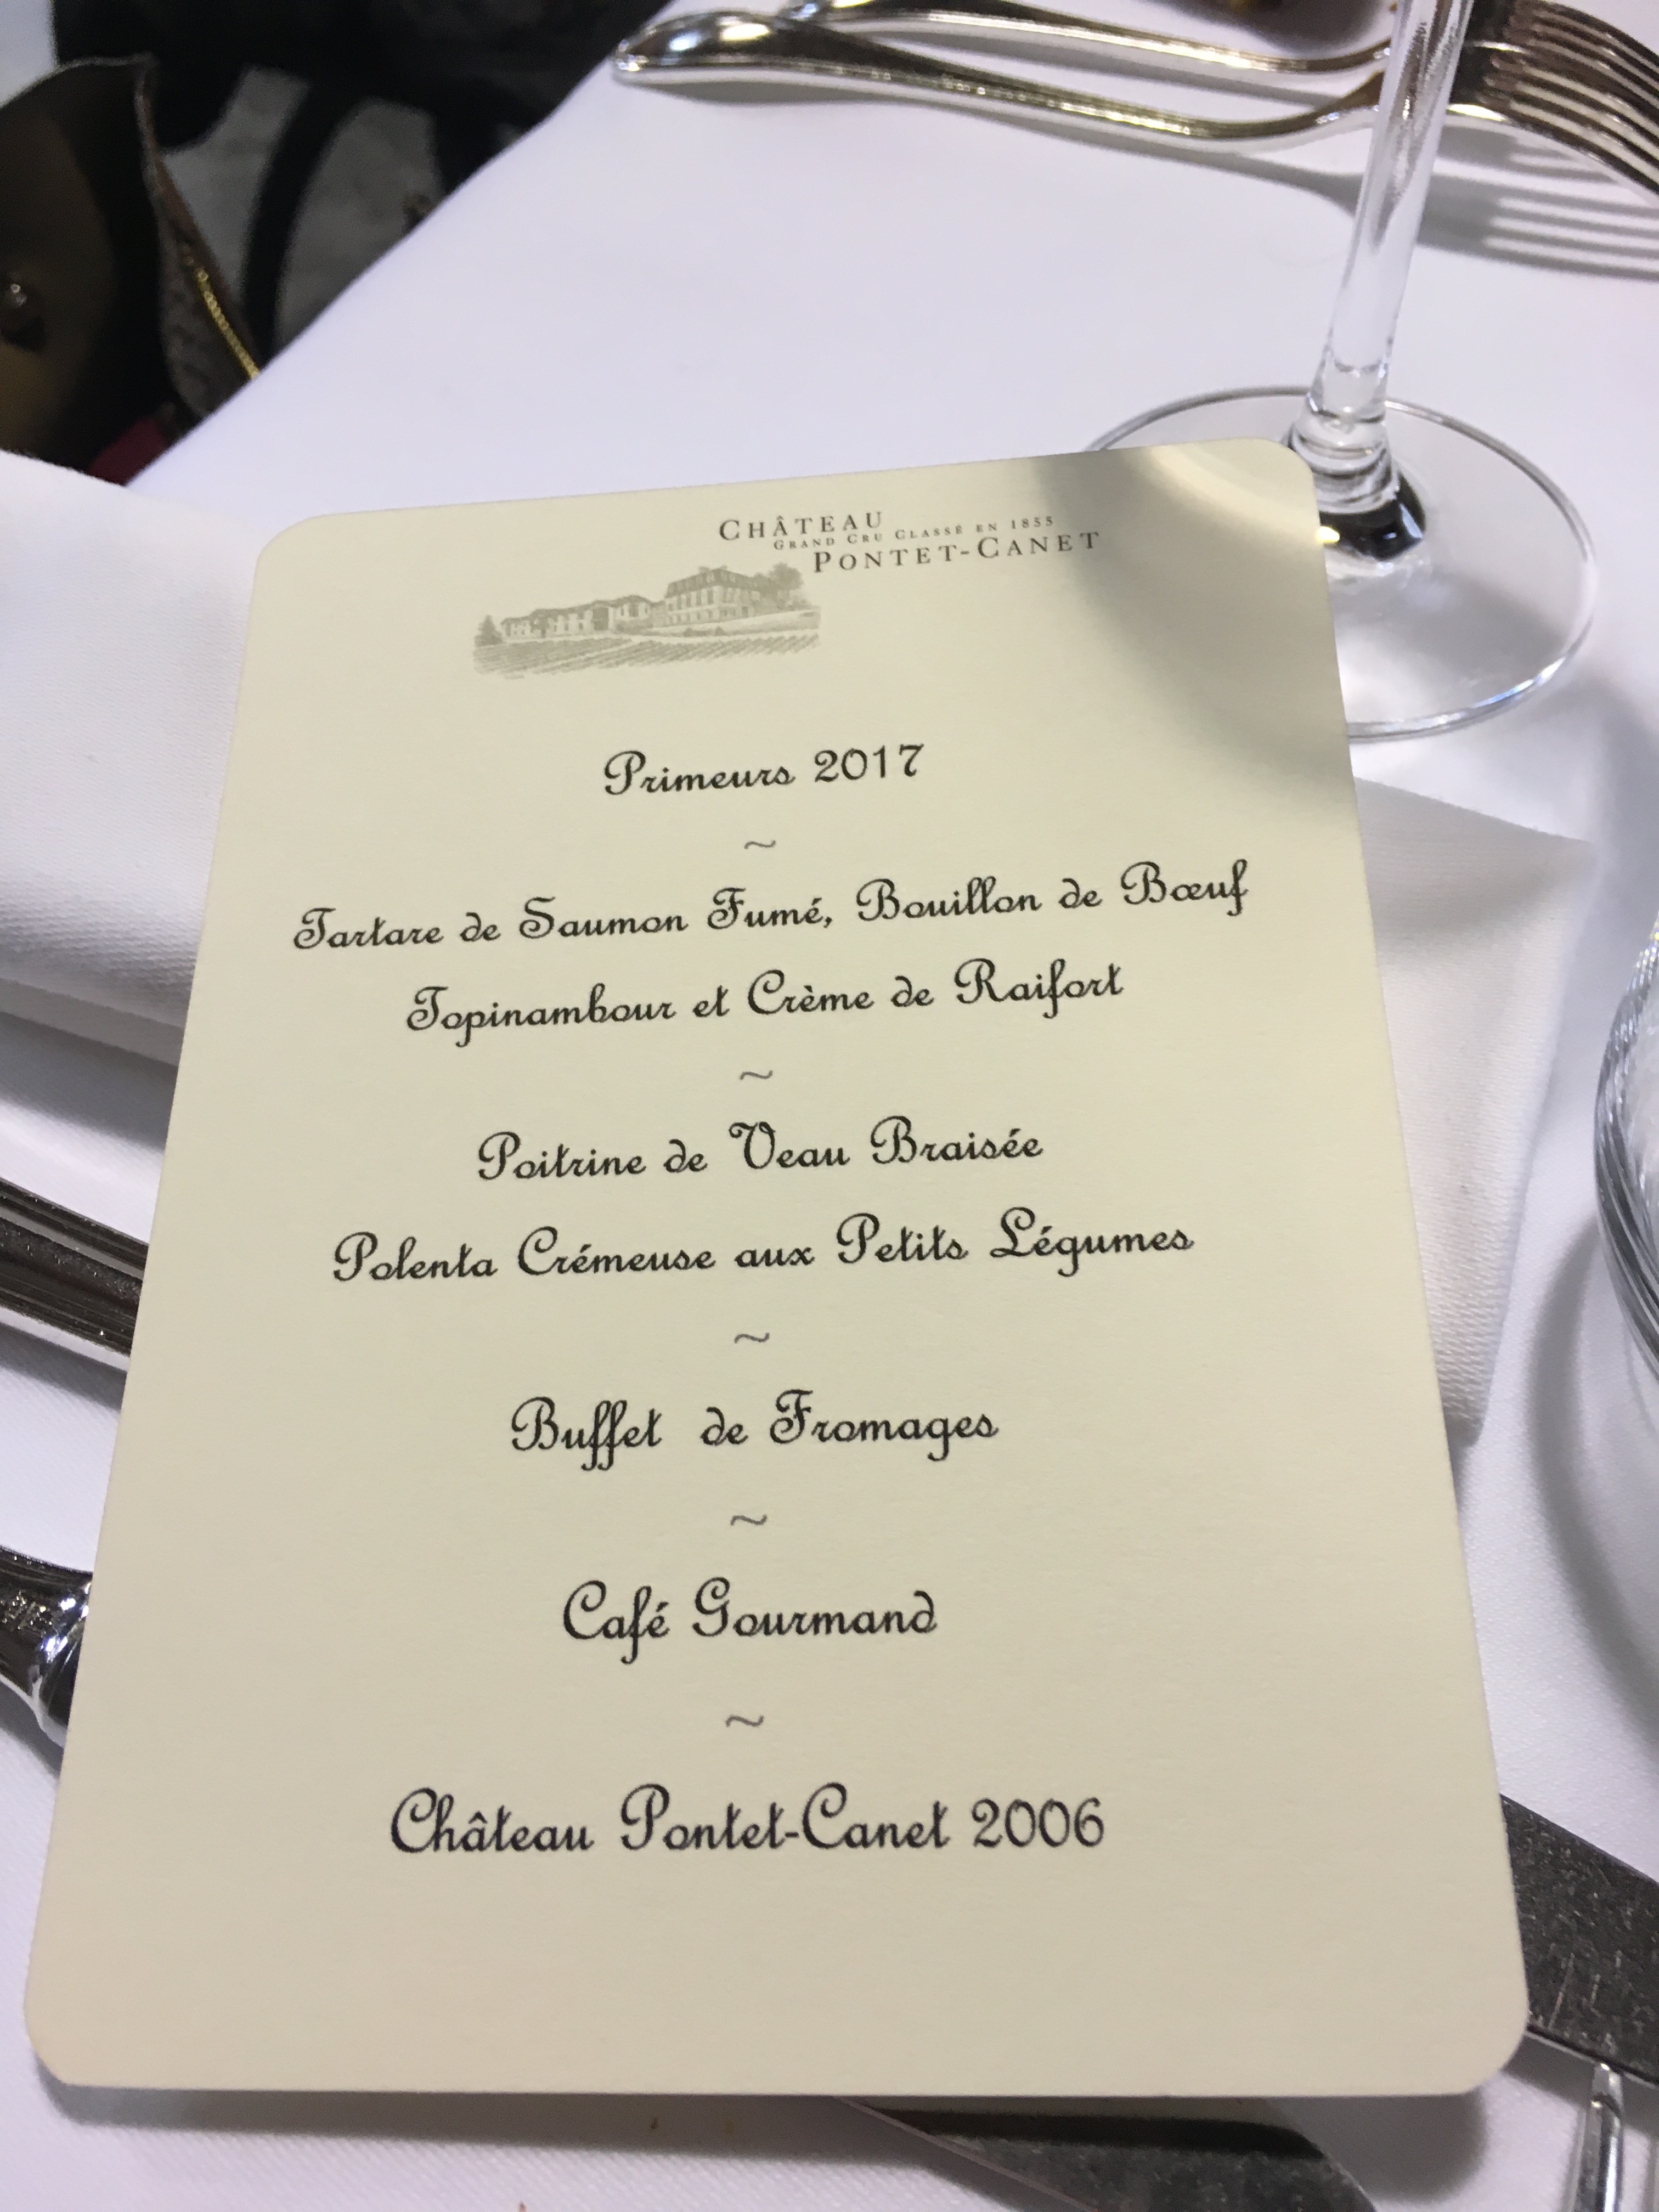 CHÂTEAU
GRAND CRU CLASSÉ EN 1855
PONTET-CANET
Primeurs 2017
~
Tartare de Saumon Fumé, Bouillon de Bœuf
Topinambour et Crème de Raifort
~
Poitrine de Veau Braisée
Polenta Crémeuse aux Petits Légumes
~
Buffet de Fromages
~
Café Gourmand
~
Château Pontet-Canet 2006